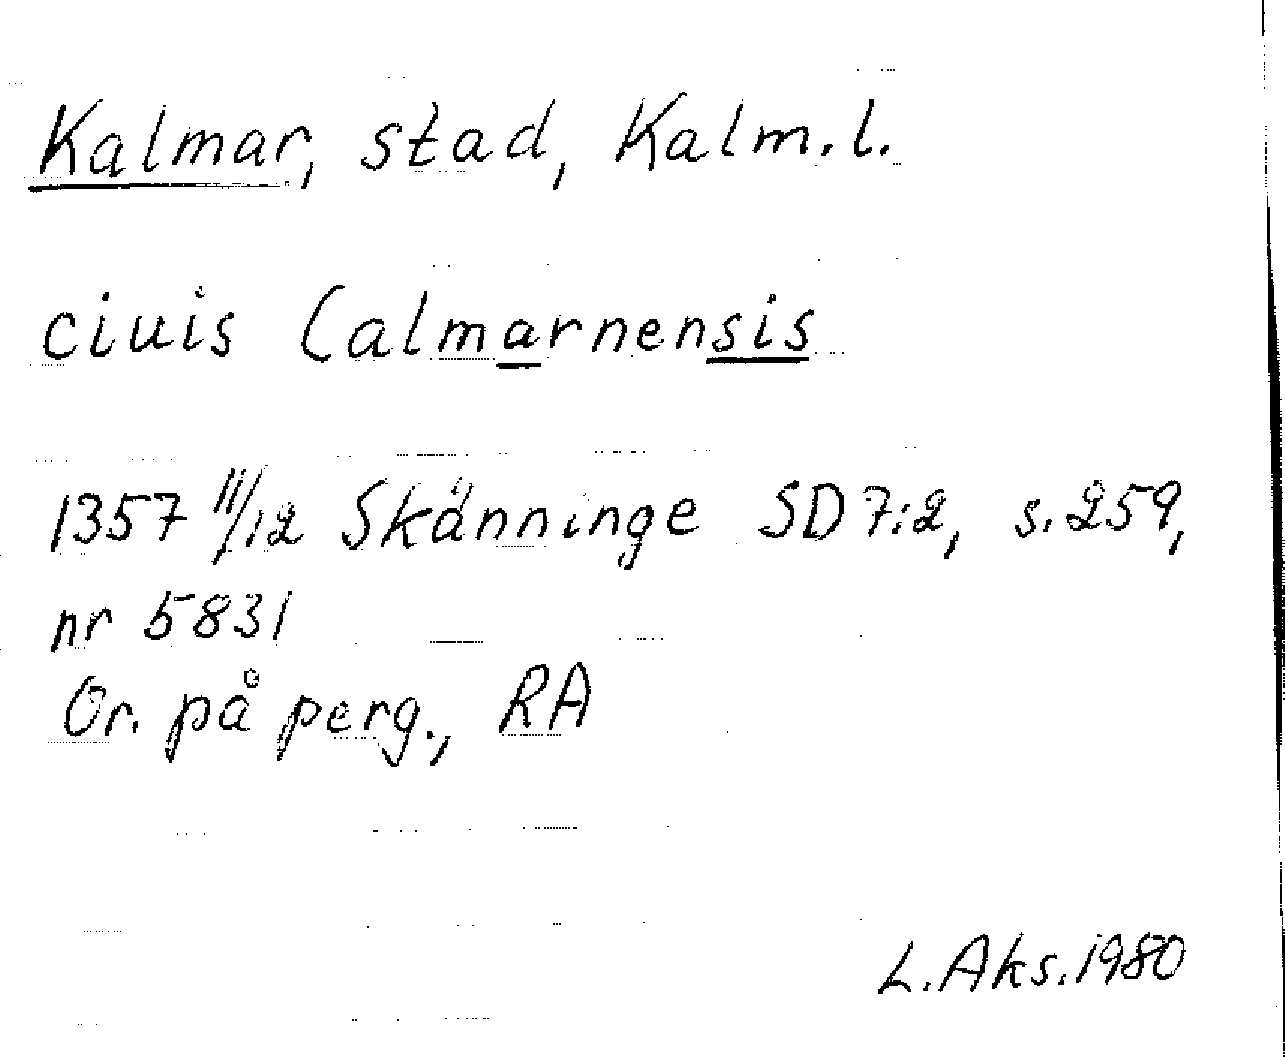 Kalmar, stad, Kalm.l.
ciuis Calmarnensis
1357 11/12 Skänninge SD 7:2, s. 259,
nr 5831
Or. på perg., RA
L. Aks. 1980